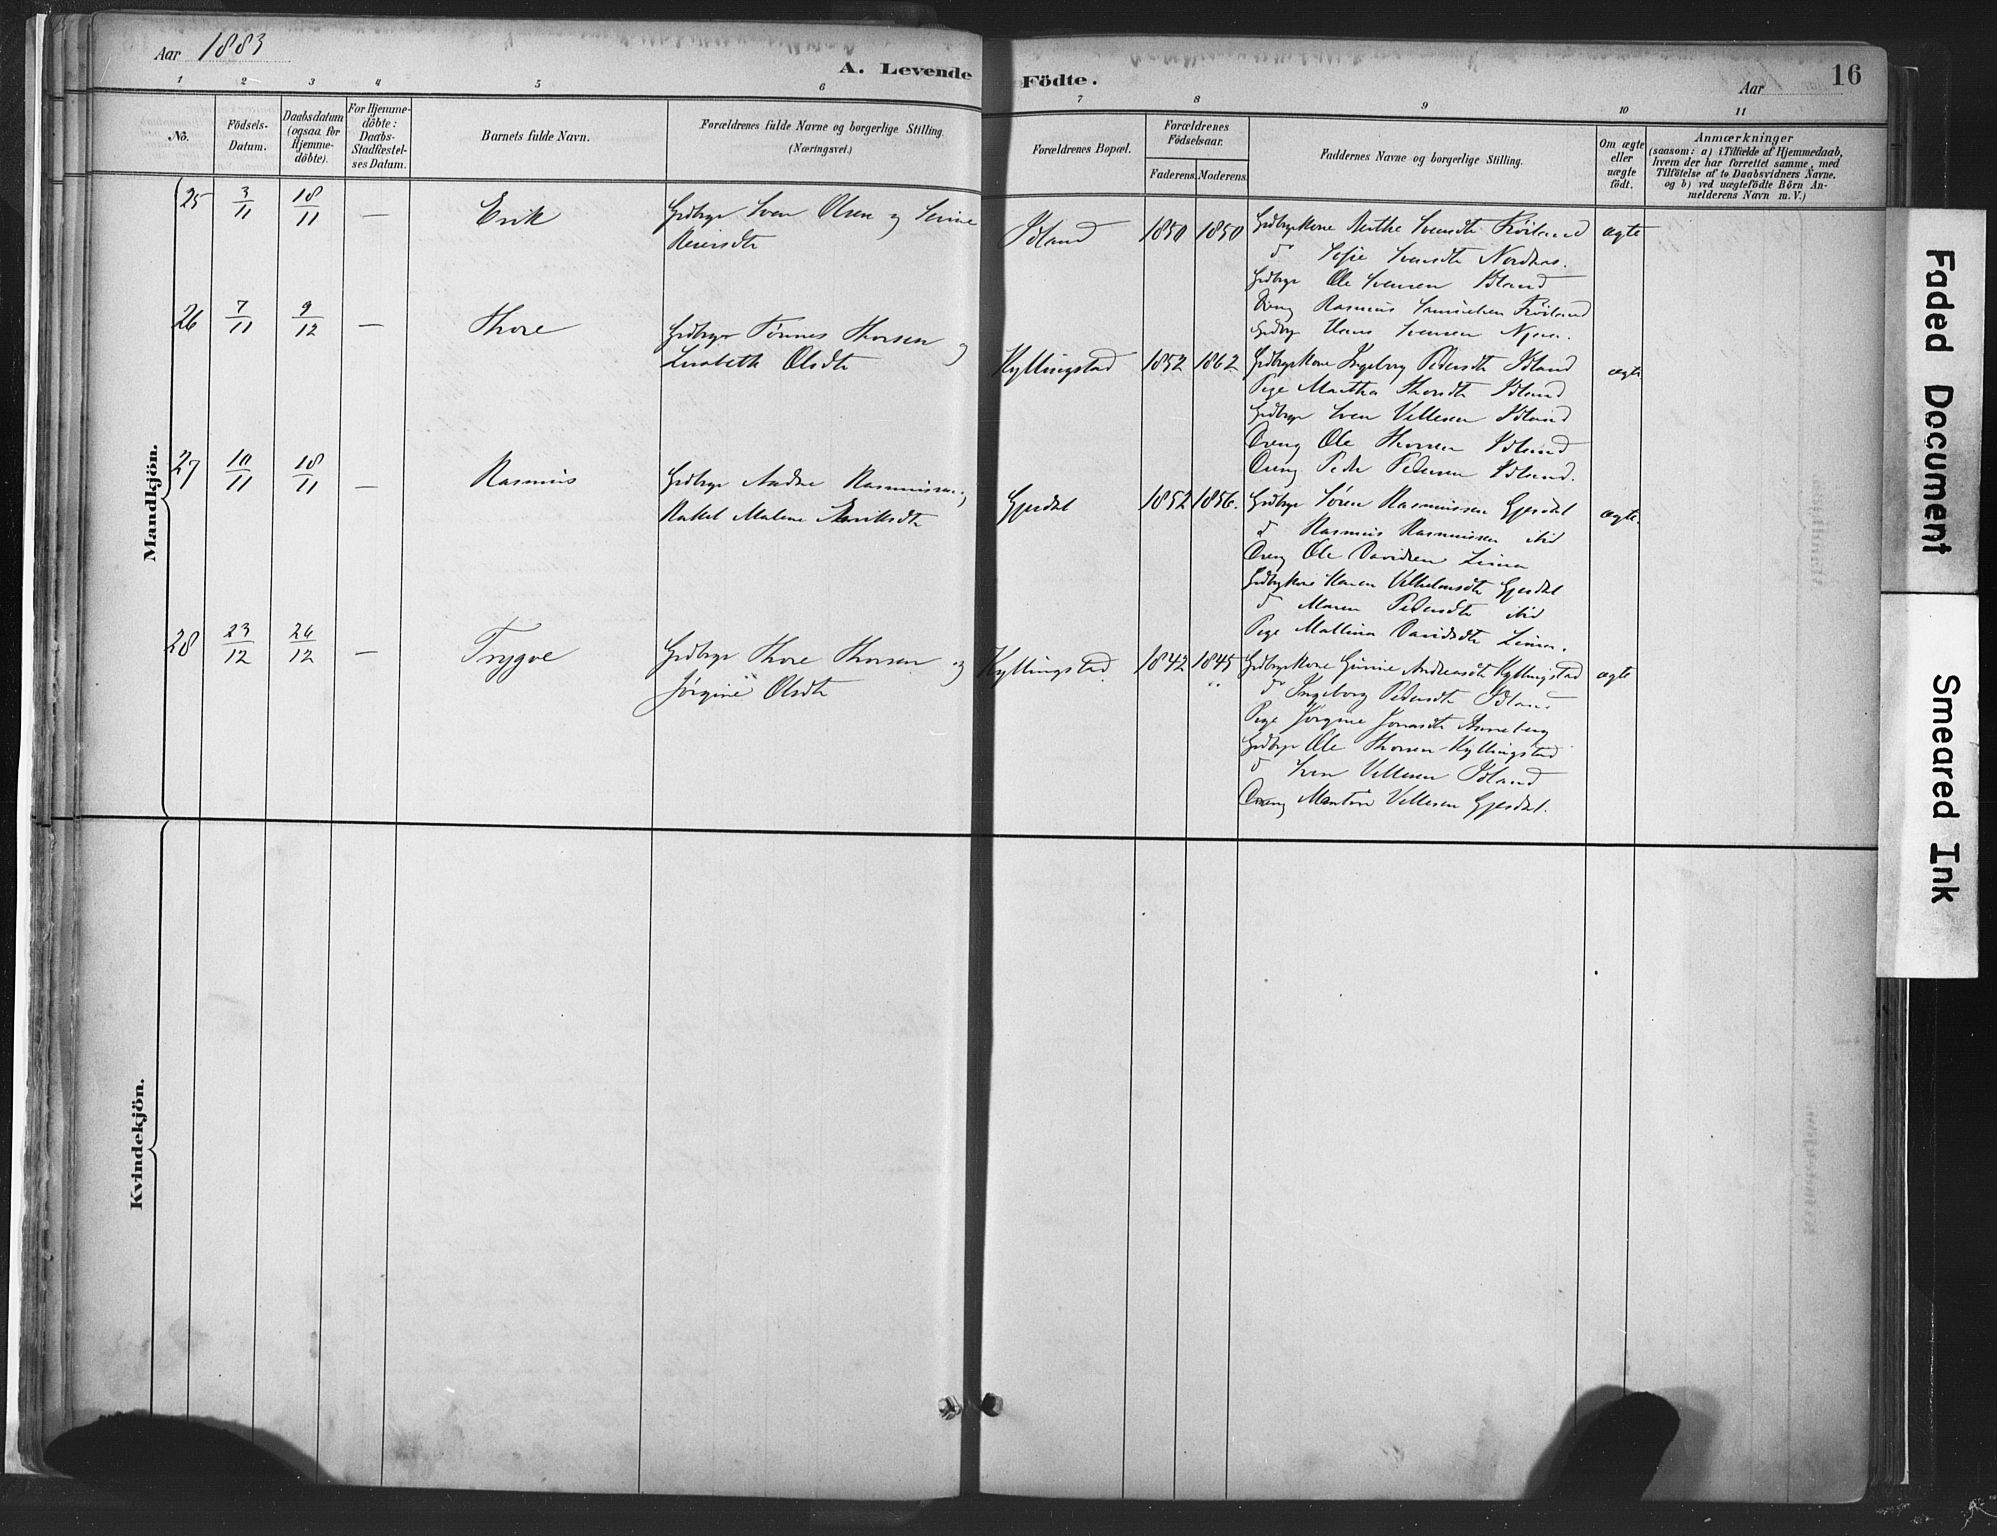 Aar 1883
A. Levende Födte.
Aar
16
1 2 3 4 5 6 7 8 9 10 11
No.
Födsels-Datum.
Daabsdatum (ogsaa for Hjemme-döbte).
For Hjemme-döbte: Daabs-Stadfæstel-ses Datum.
Barnets fulde Navn.
Forældrenes fulde Navne og borgerlige Stilling. (Næringsvei.)
Forældrenes Bopæl.
Forældrenes Födselsaar.
Faderens. Moderens.
Faddernes Navne og borgerlige Stilling.
Om ægte eller uægte födt.
Anmærkninger
(saasom: a) i Tilfælde af Hjemmedaab,
hvem der har forrettet samme, med
Tilföielse af to Daabsvidners Navne,
og b) ved uægtefödte Börn An-
melderens Navn m. V.)
Mandkjön.
25 3/11 18/11 — Erik Grdbrgr Sven Olsen og Serine
Reiersdtr
Idland 1850 1850 ægte
Grdbrgrkone Berthe Svensdtr
do Sofie Svensdtr
Grdbrgr Ole Svensen Idland
Dreng Rasmus
Grdbrgr Hans Svensen
26 7/11 9/12 — Thore Grdbrgr Tönnes Thorsen og
Lisabeth Olsdtr
Kyllingstad 1852 1862 ægte.
Grdbrgrkone Ingeborg Pedersdtr Idland
Pige Martha Thorsdtr Idland
Grdbrgr Sven Villesen Idland
Dreng Ole Thorsen Idland
Dreng Peder Pedersen Idland.
27 10/11 18/11 — Rasmus Grdbrgr Andr. Rasmussen og
Rakel Malene
Gjesdal 1852 1856. ægte.
Grdbrgr Sören Rasmussen Gjesdal
do Rasmus Rasmussen ibid
Dreng Ole Davidsen Lima
Grdbrgrkone Karen Vilhelmsdtr Gjesdal
do Maren Pedersdtr ibid
Pige Mallina Davidsdtr Lima.
28 23/12 26/12 — Trygve Grdbrgr Thore Thorsen og
Jörgine Olsdtr
Kyllingstad. 1842 1845 ægte
Grdbrgrkone Gunnie Andreasdtr Kyllingstad
do Ingeborg Pedersdtr Idland
Pige Jörgine Jonasdtr
Grdbrgr Ole Thorsen Kyllingstad
do Sven Villesen Idland
Dreng Martin Villesen Gjesdal.
Kvindekjön.
Faded Document
Smeared Ink